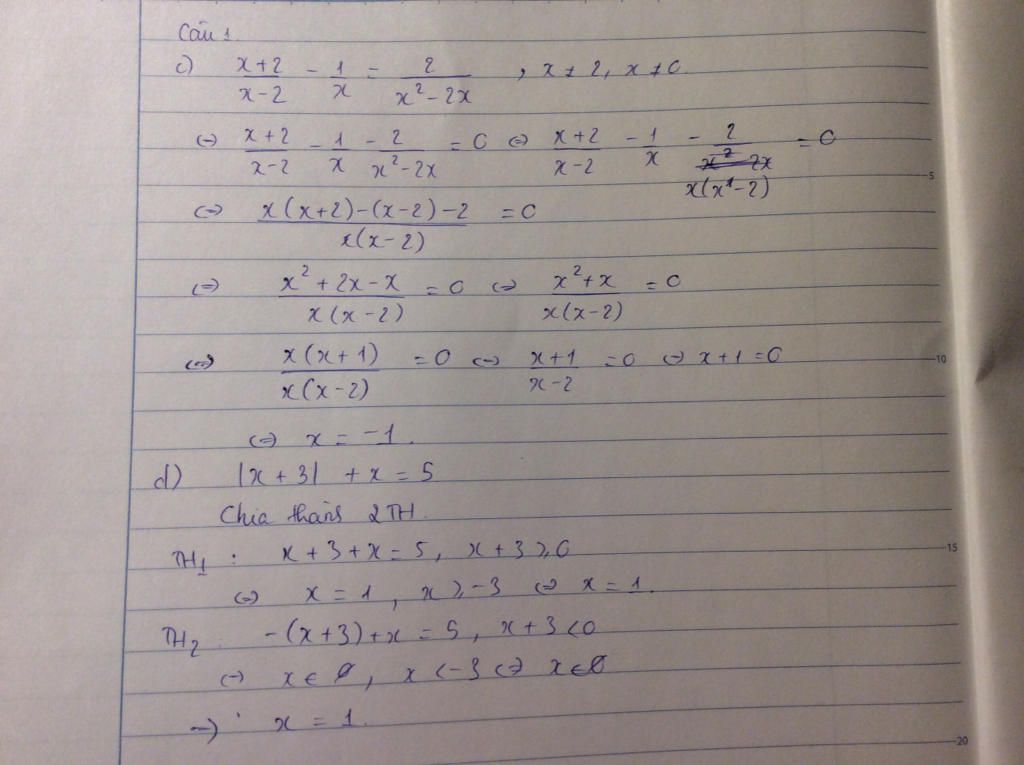 Câu 1.
c) \frac{x+2}{x-2} - \frac{1}{x} = \frac{2}{x^2-2x} , x ≠ 2, x ≠ 0.
⇔ \frac{x+2}{x-2} - \frac{1}{x} - \frac{2}{x^2-2x} = 0 ⇔ \frac{x+2}{x-2} - \frac{1}{x} - \frac{2}{x(x-2)} = 0
⇔ \frac{x(x+2)-(x-2)-2}{x(x-2)} = 0
⇔ \frac{x^2+2x-x}{x(x-2)} = 0 ⇔ \frac{x^2+x}{x(x-2)} = 0
⇔ \frac{x(x+1)}{x(x-2)} = 0 ⇔ \frac{x+1}{x-2} = 0 ⇔ x+1=0
⇔ x = -1.
d) |x+3| + x = 5
Chia thành 2TH.
TH1 : x+3+x=5, x+3⩾0
⇔ x = 1 , x⩾-3 ⇔ x = 1.
TH2 : -(x+3)+x = 5, x+3<0
⇔ x ∈ ∅, x <-3 ⇔ x∈∅
→ x = 1.
5
10
15
20